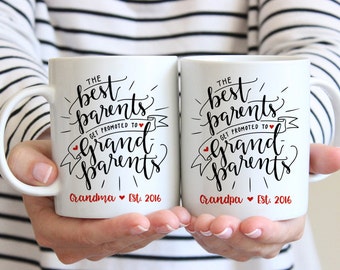 THE
best
parents
GET PROMOTED TO
Grand
parents
Grandma ♥ Est. 2016
THE
best
parents
GET PROMOTED TO
Grand
parents
Grandpa ♥ Est. 2016